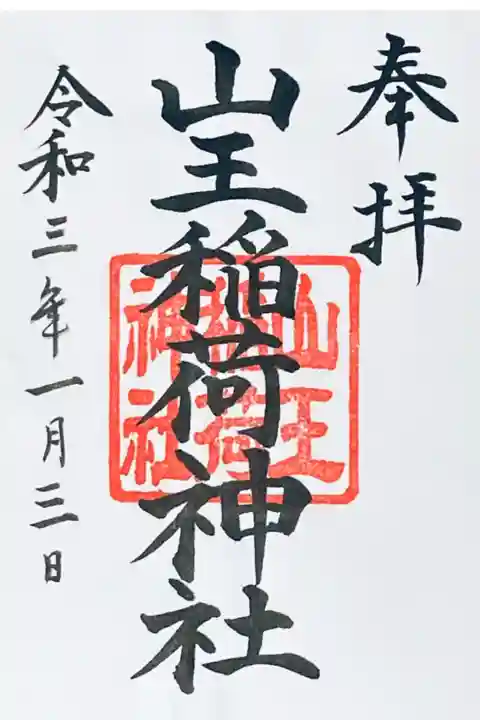 奉拝
山王稲荷神社
令和三年一月三日
山王
稲荷
神社